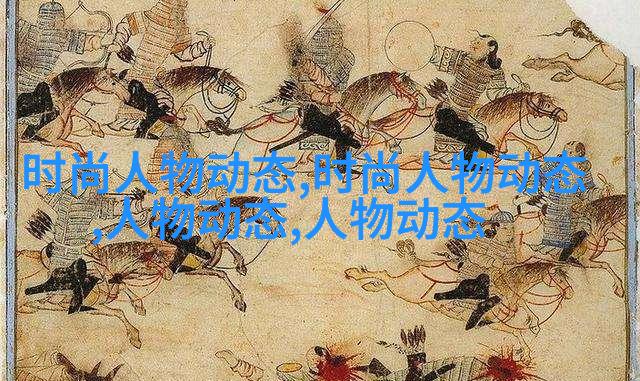 时尚人物动态,时尚人物动态
,人物动态,人物动态